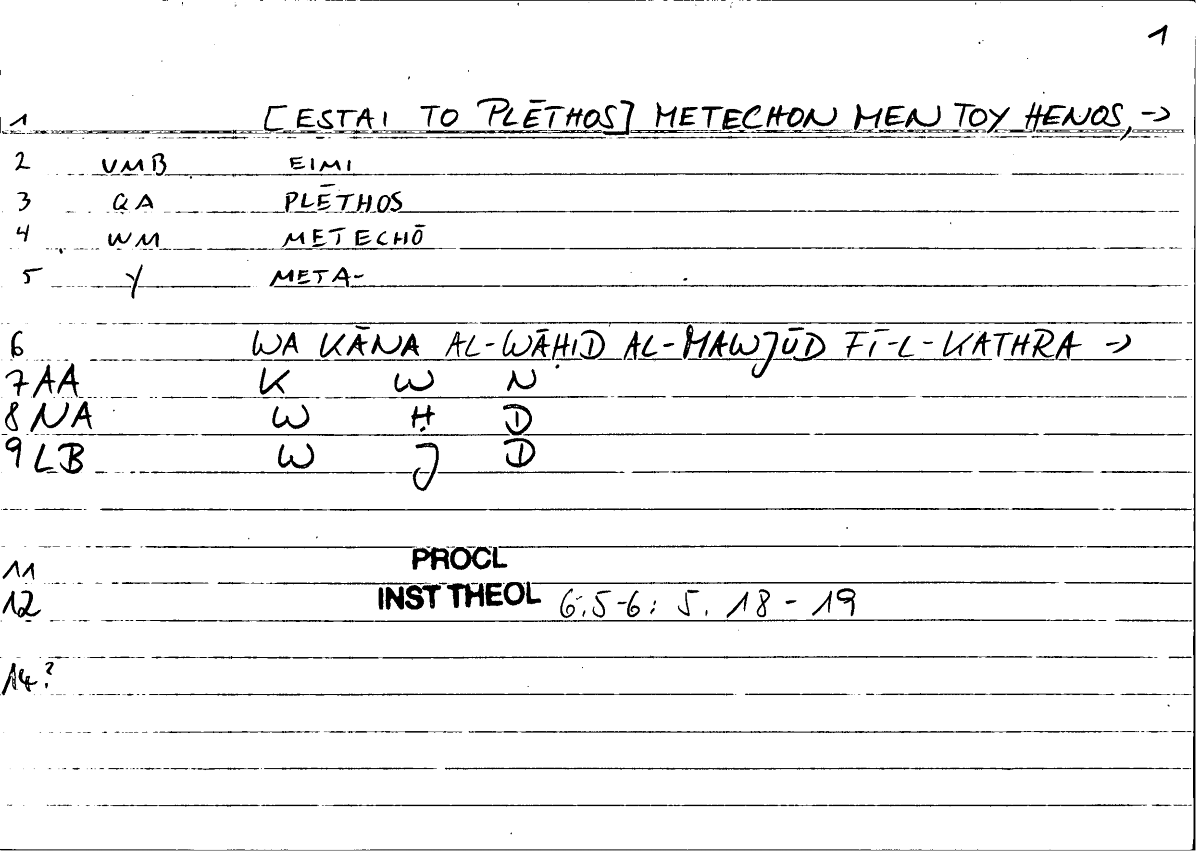 1
1 [ESTAI TO PLĒTHOS] METECHON MEN TOY HENOS, ->
2 VMB EIMI
3 QA PLĒTHOS
4 WM METECHŌ
5 Y META-
6 WA KĀNA AL-WĀḤID AL-MAWJŪD FĪ-L-KATHRA ->
7 AA K W N
8 NA W Ḥ D
9 LB W J D
11 PROCL
12 INST THEOL 6:5-6: 5. 18 - 19
14?